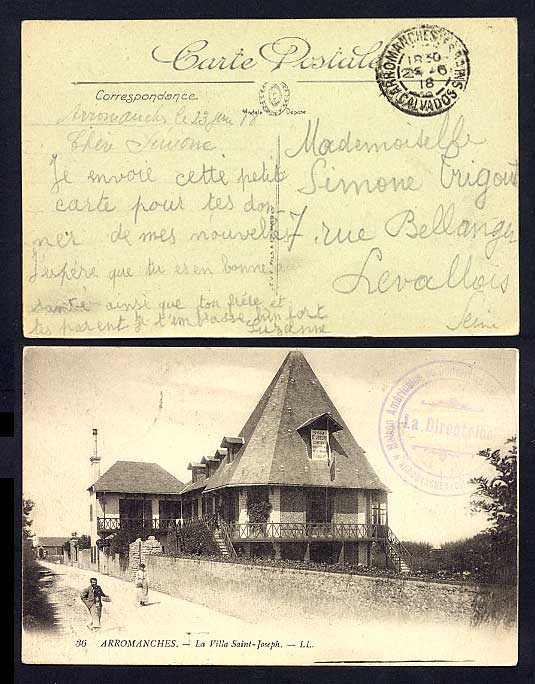 Carte Postale
Correspondance
Modèle Déposé
ARROMANCHES-LES-BAINS
18 30
18
CALVADOS
Arromanches le 23 juin 18
Chère Simone
Je envoie cette petit
carte pour tes don
ner de mes nouvelle
J'espére que tu es en bonne
santé ainsi que ton frère et
tes parent Je t'embrasse bien fort
Suzanne
Mademoiselle
Simone Trigout
7, rue Bellanger
Levallois
Seine
La Directrice
36 ARROMANCHES. — La Villa Saint-Joseph. — LL.